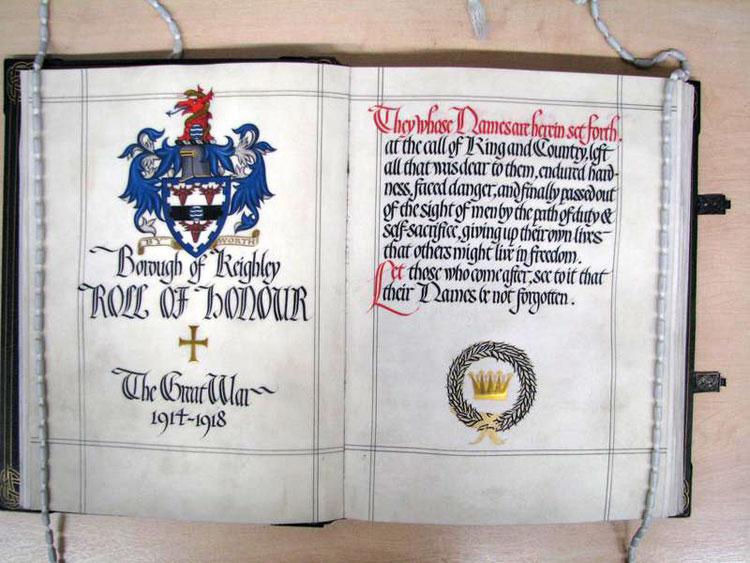 BY WORTH
Borough of Keighley
ROLL OF HONOUR
The Great War
1914-1918
They whose Names are herein set forth,
at the call of King and Country, left
all that was dear to them, endured hard-
ness, faced danger, and finally passed out
of the sight of men by the path of duty &
self-sacrifice, giving up their own lives
that others might live in freedom.
Let those who come after, see to it that
their Names be not forgotten.